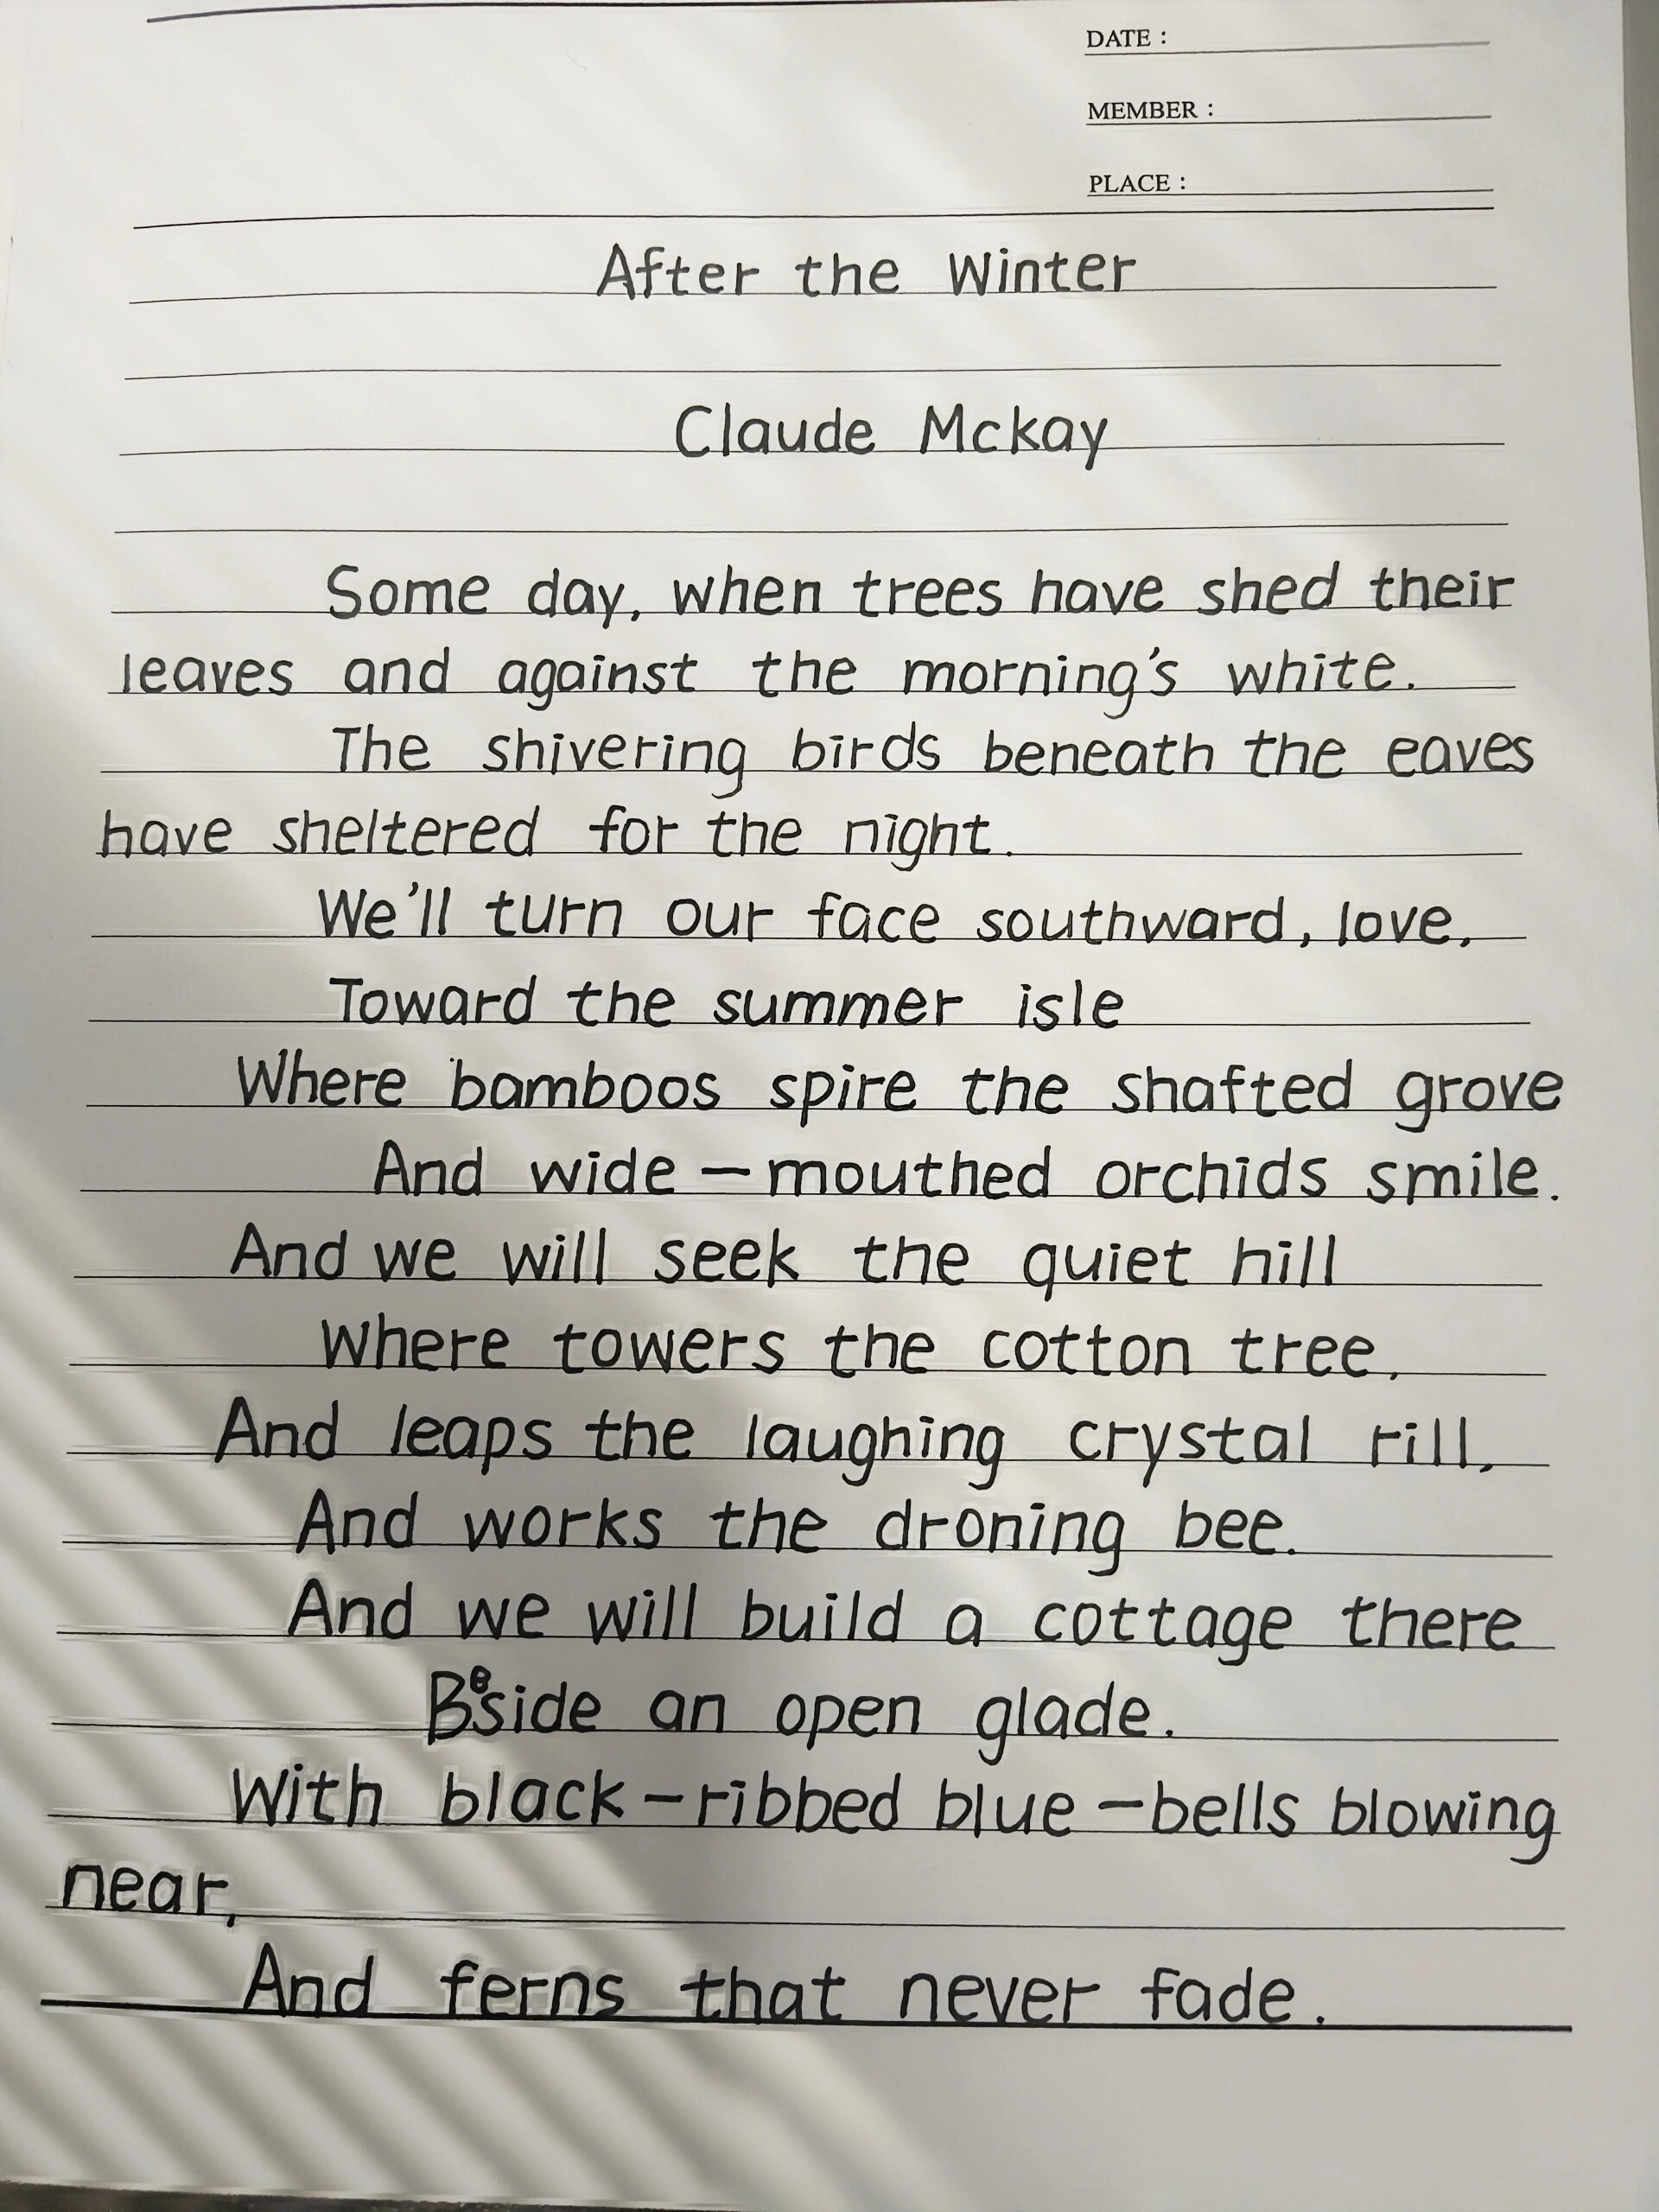 DATE :
MEMBER :
PLACE :
After the Winter
Claude Mckay
Some day, when trees have shed their
leaves and against the morning's white.
The shivering birds beneath the eaves
have sheltered for the night.
We'll turn our face southward, love,
Toward the summer isle
Where bamboos spire the shafted grove
And wide-mouthed orchids smile.
And we will seek the quiet hill
Where towers the cotton tree,
And leaps the laughing crystal rill,
And works the droning bee.
And we will build a cottage there
Beside an open glade.
With black-ribbed blue-bells blowing
near,
And ferns that never fade.